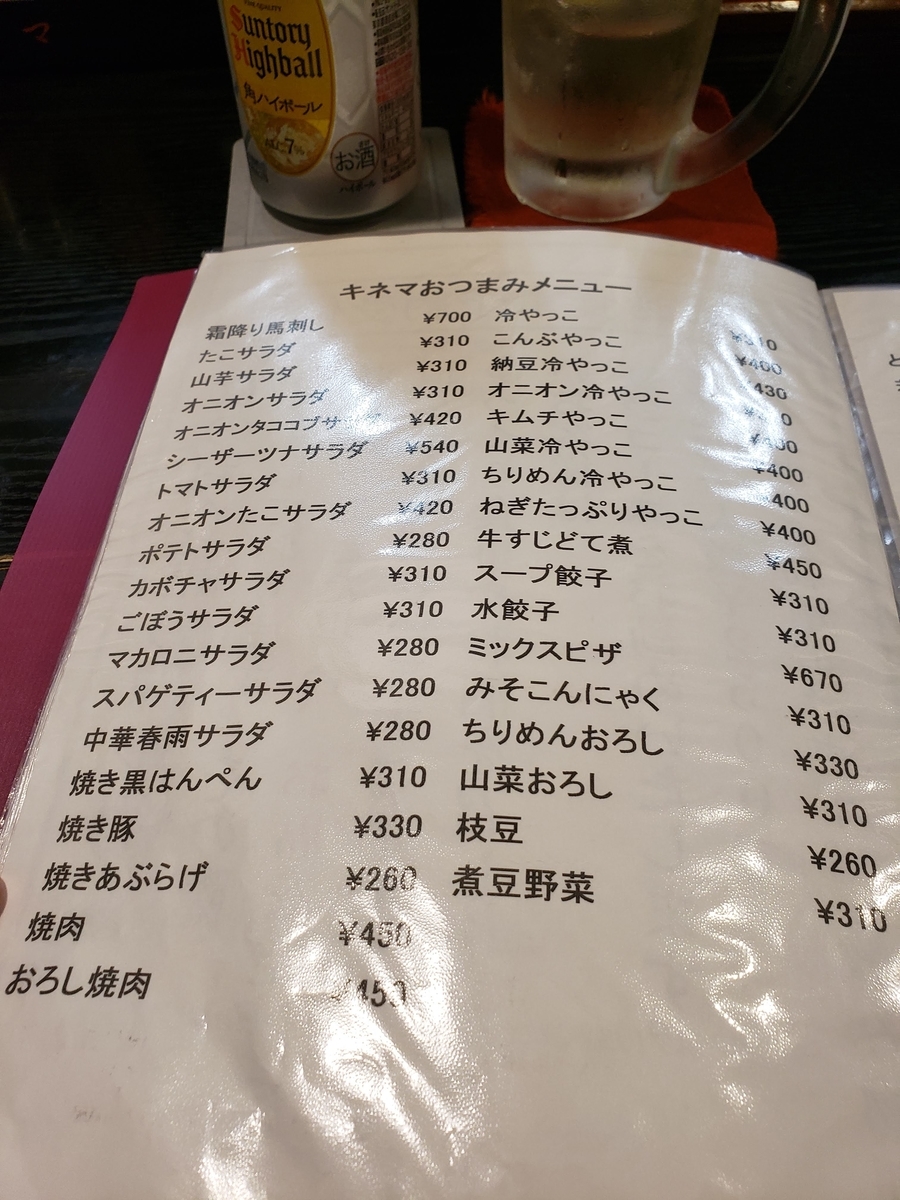 Suntory
Highball
角ハイボール
7%
お酒
ハイボール
キネマおつまみメニュー
霜降り馬刺し ¥700 冷やっこ ¥310
たこサラダ ¥310 こんぶやっこ ¥400
山芋サラダ ¥310 納豆冷やっこ ¥430
オニオンサラダ ¥310 オニオン冷やっこ
オニオンタココブサラダ ¥420 キムチやっこ ¥400
シーザーツナサラダ ¥540 山菜冷やっこ ¥400
トマトサラダ ¥310 ちりめん冷やっこ ¥400
オニオンたこサラダ ¥420 ねぎたっぷりやっこ ¥400
ポテトサラダ ¥280 牛すじどて煮 ¥450
カボチャサラダ ¥310 スープ餃子 ¥310
ごぼうサラダ ¥310 水餃子 ¥310
マカロニサラダ ¥280 ミックスピザ ¥670
スパゲティーサラダ ¥280 みそこんにゃく ¥310
中華春雨サラダ ¥280 ちりめんおろし ¥330
焼き黒はんぺん ¥310 山菜おろし ¥310
焼き豚 ¥330 枝豆 ¥260
焼きあぶらげ ¥260 煮豆野菜 ¥310
焼肉 ¥450
おろし焼肉 ¥450